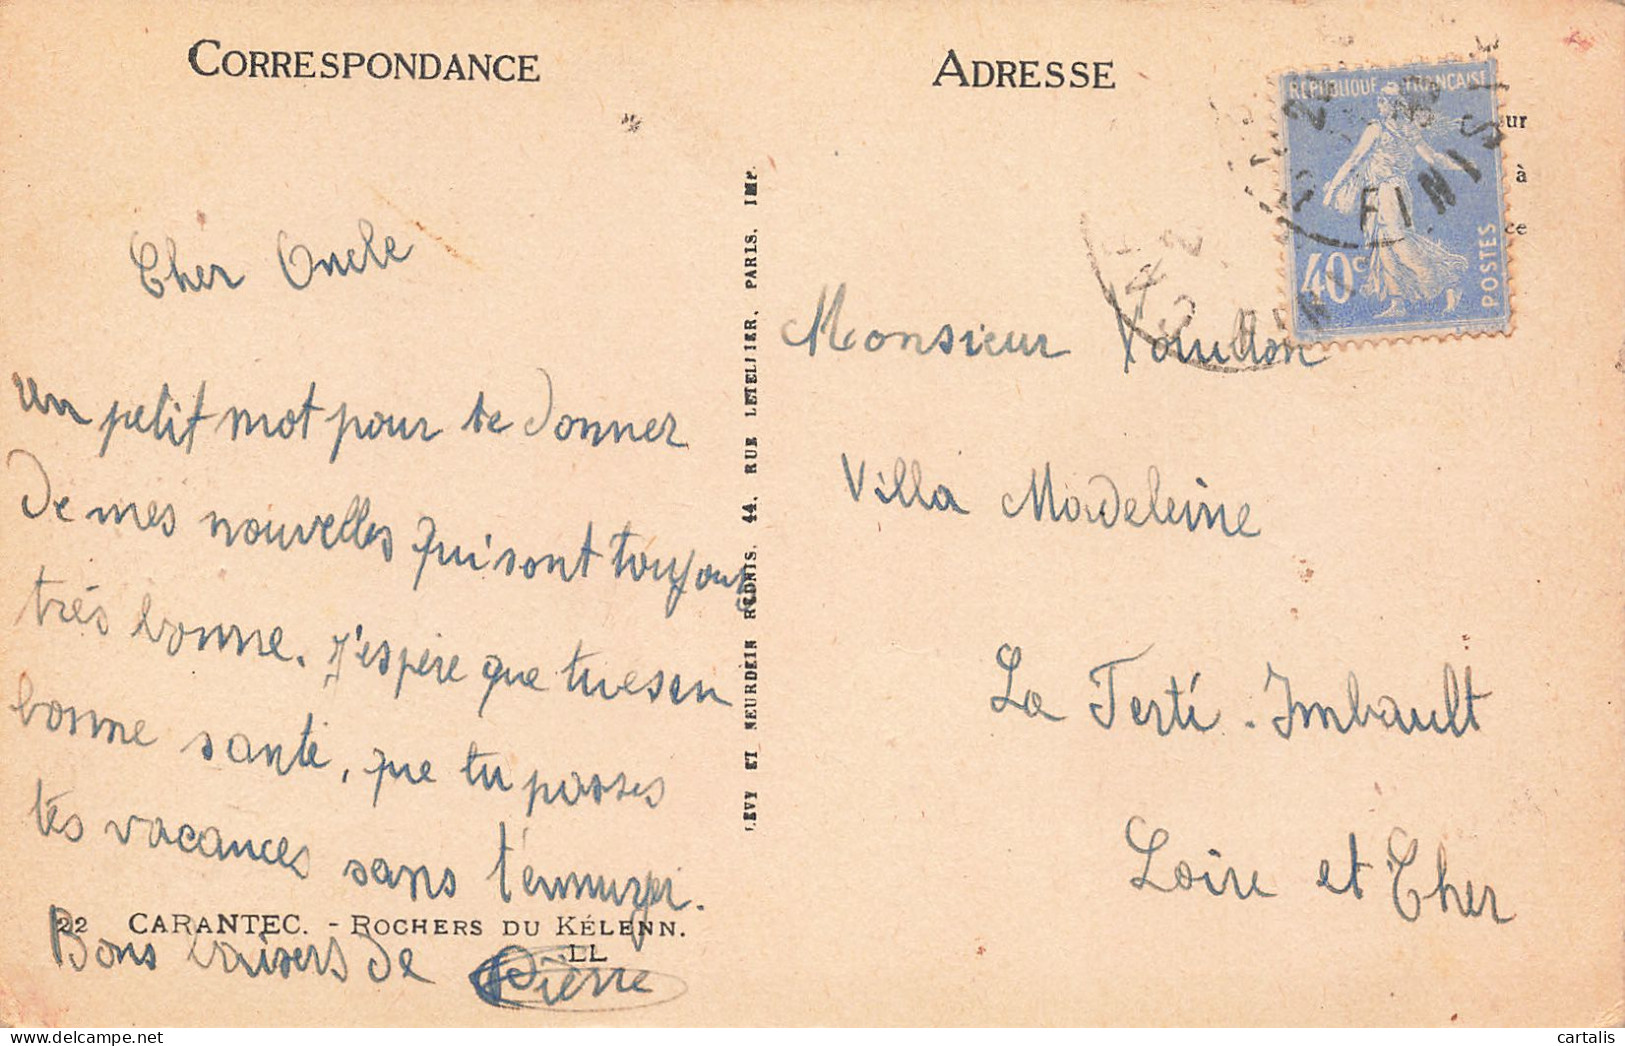 CORRESPONDANCE
Cher Oncle
un petit mot pour te donner
de mes nouvelles qui sont toujours
très bonne. J'espère que tu es en
bonne santé, que tu passes
tes vacances sans t'ennuyer.
22 CARANTEC. - ROCHERS DU KÉLENN.
LL
Bons baisers de Pierre
LEVY ET NEURDEIN RÉUNIS, 44, RUE LETELLIER, PARIS. IMP.
ADRESSE
REPUBLIQUE FRANÇAISE
40c
POSTES
FINIST
ur
à
ce
Monsieur
Villa Madeleine
La Ferté-Imbault
Loire et Cher
cartalis